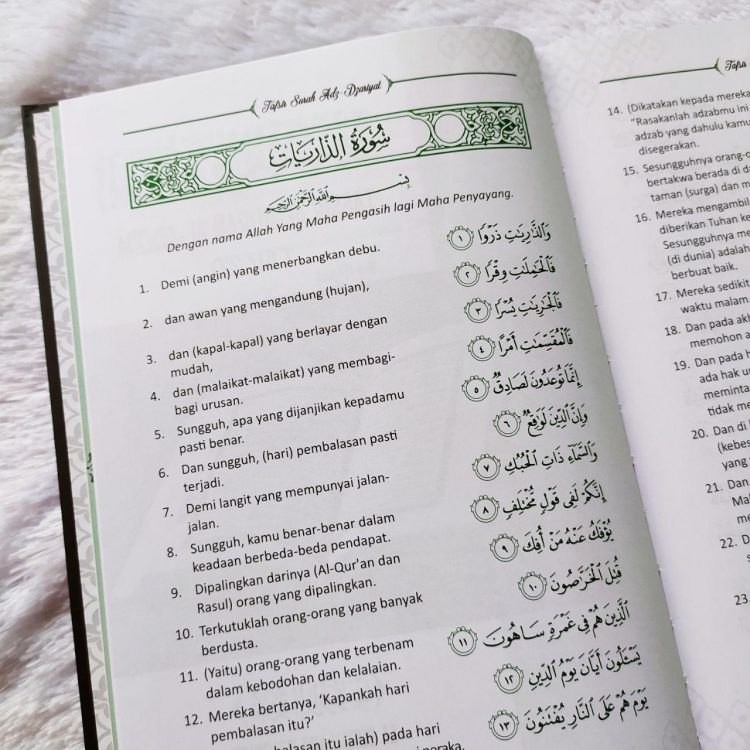 Tafsir Surah Adz-Dzariyat
سُورَةُ الذَّارِيَاتِ
بِسْمِ اللَّهِ الرَّحْمَٰنِ الرَّحِيمِ
Dengan nama Allah Yang Maha Pengasih lagi Maha Penyayang.
1. Demi (angin) yang menerbangkan debu.
وَالذَّارِيَاتِ ذَرْوًا ١
2. dan awan yang mengandung (hujan),
فَالْحَامِلَاتِ وِقْرًا ٢
3. dan (kapal-kapal) yang berlayar dengan
mudah,
فَالْجَارِيَاتِ يُسْرًا ٣
4. dan (malaikat-malaikat) yang membagi-
bagi urusan.
فَالْمُقَسِّمَاتِ أَمْرًا ٤
5. Sungguh, apa yang dijanjikan kepadamu
pasti benar.
إِنَّمَا تُوعَدُونَ لَصَادِقٌ ٥
6. Dan sungguh, (hari) pembalasan pasti
terjadi.
وَإِنَّ الدِّينَ لَوَاقِعٌ ٦
7. Demi langit yang mempunyai jalan-
jalan.
وَالسَّمَاءِ ذَاتِ الْحُبُكِ ٧
8. Sungguh, kamu benar-benar dalam
keadaan berbeda-beda pendapat.
إِنَّكُمْ لَفِي قَوْلٍ مُخْتَلِفٍ ٨
9. Dipalingkan darinya (Al-Qur'an dan
Rasul) orang yang dipalingkan.
يُؤْفَكُ عَنْهُ مَنْ أُفِكَ ٩
10. Terkutuklah orang-orang yang banyak
berdusta.
قُتِلَ الْخَرَّاصُونَ ١٠
11. (Yaitu) orang-orang yang terbenam
dalam kebodohan dan kelalaian.
الَّذِينَ هُمْ فِي غَمْرَةٍ سَاهُونَ ١١
12. Mereka bertanya, 'Kapankah hari
pembalasan itu?'
يَسْأَلُونَ أَيَّانَ يَوْمُ الدِّينِ ١٢
balasan itu ialah) pada hari
neraka,
يَوْمَ هُمْ عَلَى النَّارِ يُفْتَنُونَ ١٣
Tafsir
14. (Dikatakan kepada mereka
"Rasakanlah adzabmu ini
adzab yang dahulu kamu
disegerakan.
15. Sesungguhnya orang-o
bertakwa berada di da
taman (surga) dan m
16. Mereka mengambil
diberikan Tuhan ke
Sesungguhnya me
(di dunia) adalah
berbuat baik.
17. Mereka sedikit
waktu malam
18. Dan pada akh
memohon a
19. Dan pada h
ada hak un
meminta
tidak me
20. Dan di
(kebes
yang
21. Dan
Mak
me
22. D
s
23.